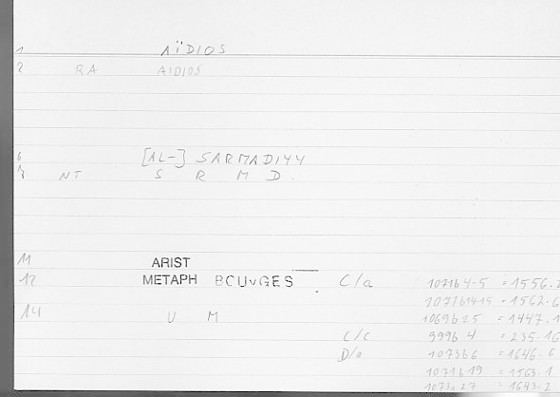 1 AÏDIOS
2 RA AIDIOS
6 [AL-] SARMADIYY
7 NT S R M D.
11 ARIST
12 METAPH BOUYGES C/a 1071b4-5 = 1556.2
1071b14-15 = 1562.6
14 U M 1069b25 = 1447.1
C/c 999b.4 = 235.16
D/a 1073b6 = 1646.6
1071b19 = 1563.1
1073a27 = 1643.2